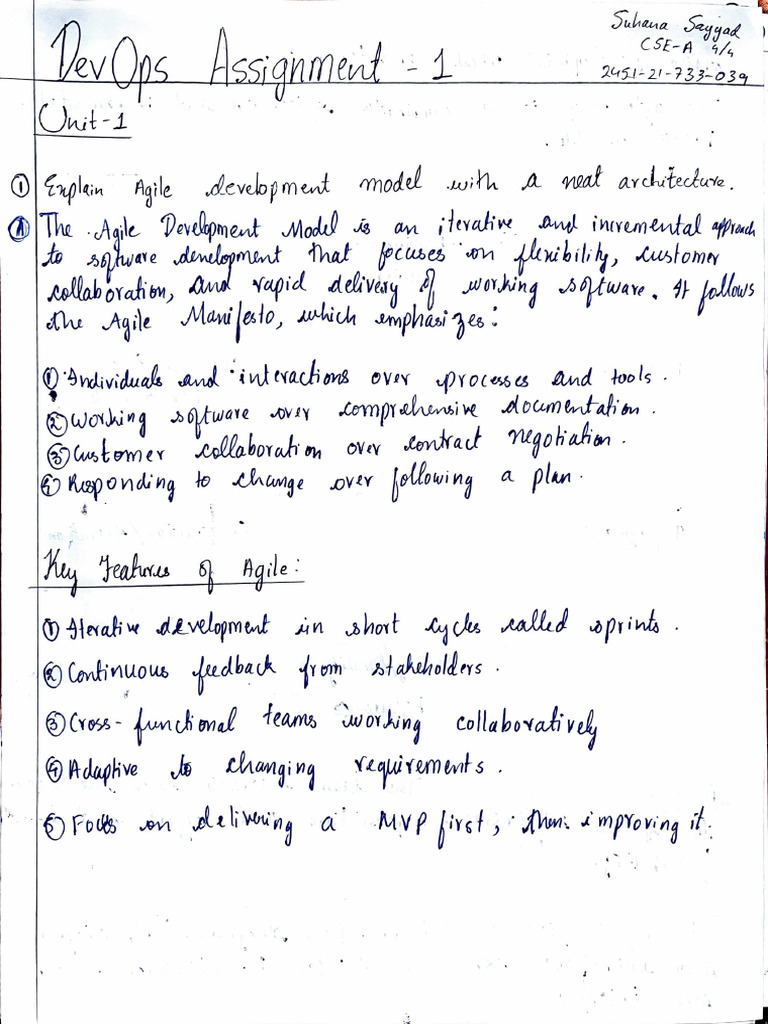 Suhana Sayyad
CSE-A 4/4
2451-21-733-039
DevOps Assignment - 1
Unit-1
① Explain Agile development model with a neat architecture.
Ⓐ The Agile Development Model is an iterative and incremental approach
to software development that focuses on flexibility, customer
collaboration, and rapid delivery of working software. It follows
the Agile Manifesto, which emphasizes:
① Individuals and interactions over processes and tools.
② Working software over comprehensive documentation.
③ Customer collaboration over contract negotiation.
④ Responding to change over following a plan.
Key Features of Agile:
① Iterative development in short cycles called sprints.
② Continuous feedback from stakeholders.
③ Cross-functional teams working collaboratively
④ Adaptive to changing requirements.
⑤ Focus on delivering a MVP first, then improving it.